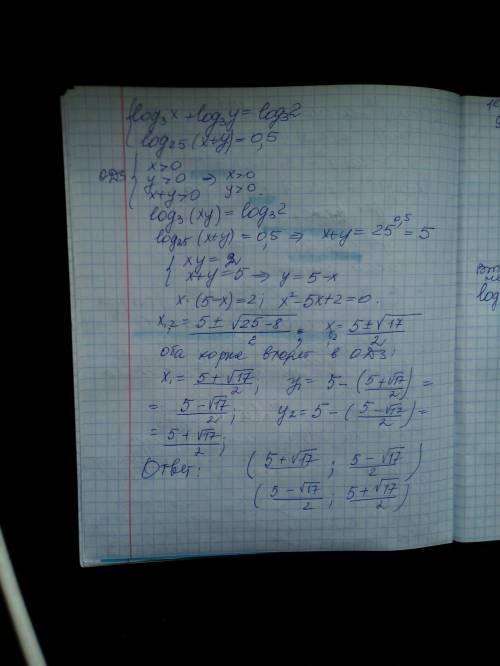 { log₃x + log₃y = log₃2
log₂₅(x+y) = 0,5
ОДЗ { x>0
y>0 ⇒ x>0
x+y>0 y>0
log₃(xy) = log₃2
log₂₅(x+y) = 0,5 ⇒ x+y = 25^0,5 = 5
{ xy = 2
x+y = 5 ⇒ y = 5-x
x·(5-x)=2; x²-5x+2=0.
x₁,₂ = (5 ± √(25-8))/2; x₁,₂ = (5±√17)/2
оба корня входят в ОДЗ:
x₁ = (5+√17)/2; y₁ = 5 - ((5+√17)/2) =
= (5-√17)/2; y₂ = 5 - ((5-√17)/2) =
= (5+√17)/2;
Ответ: ((5+√17)/2; (5-√17)/2)
((5-√17)/2; (5+√17)/2)
log